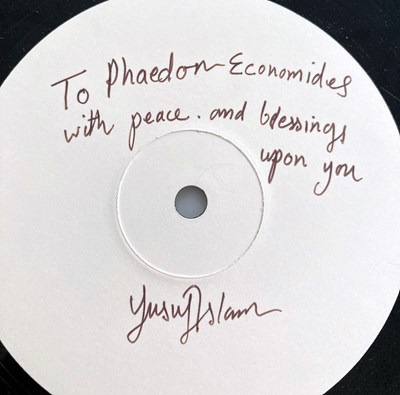 To Phaedon Economides
with peace. and blessings
upon you
Yusuf Islam